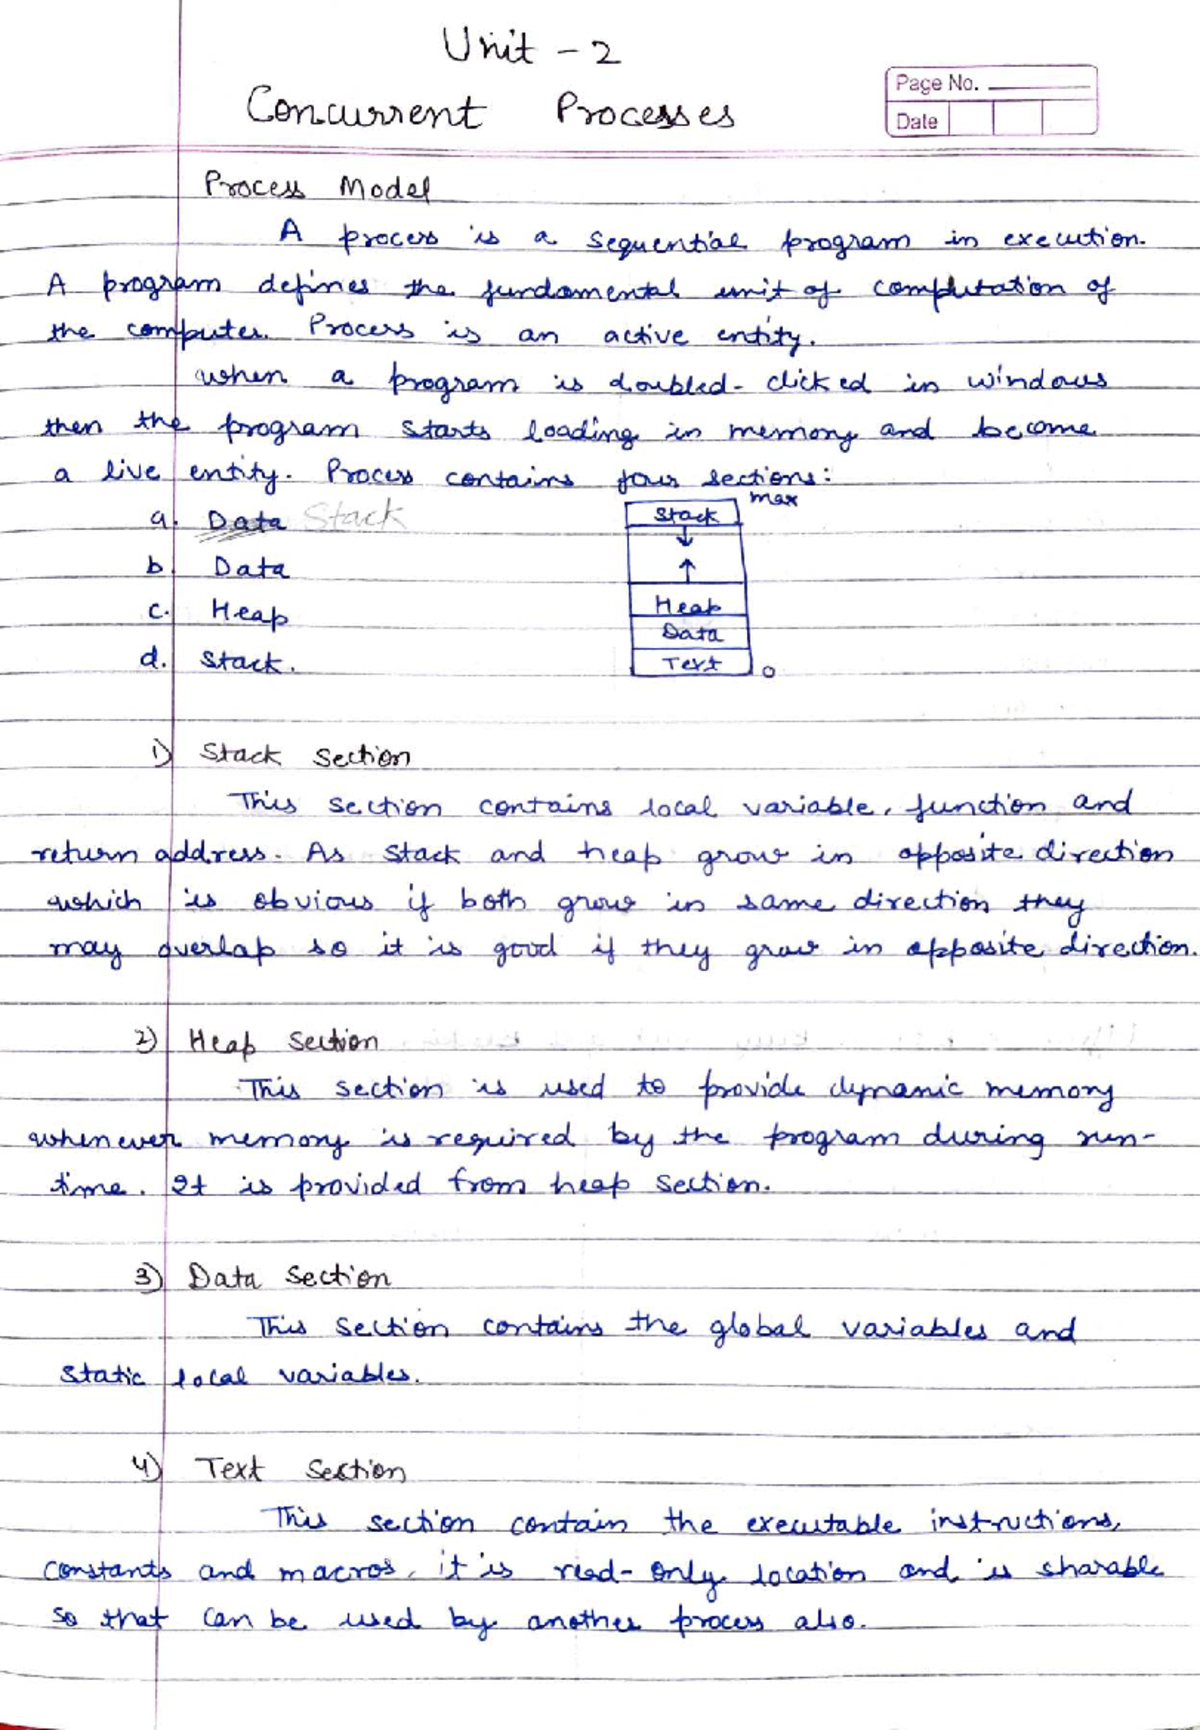 Unit - 2
Concurrent Processes
Page No.
Date
Process Model
A process is a sequential program in execution.
A program defines the fundamental unit of computation of
the computer. Process is an active entity.
when a program is doubled-clicked in windows
then the program starts loading in memory and become
a live entity. Process contains four sections:
a. Data Stack
b. Data
c. Heap
d. Stack.
max
Stack
↓
↑
Heap
Data
Text
0
1) Stack section
This section contains local variable, function and
return address. As stack and heap grow in opposite direction
which is obvious if both grow in same direction they
may overlap so it is good if they grow in opposite direction.
2) Heap section
This section is used to provide dynamic memory
whenever memory is required by the program during run-
time. It is provided from heap section.
3) Data section
This section contains the global variables and
static local variables.
4) Text section
This section contain the executable instructions,
constants and macros, it is read-only location and is sharable
so that can be used by another process also.